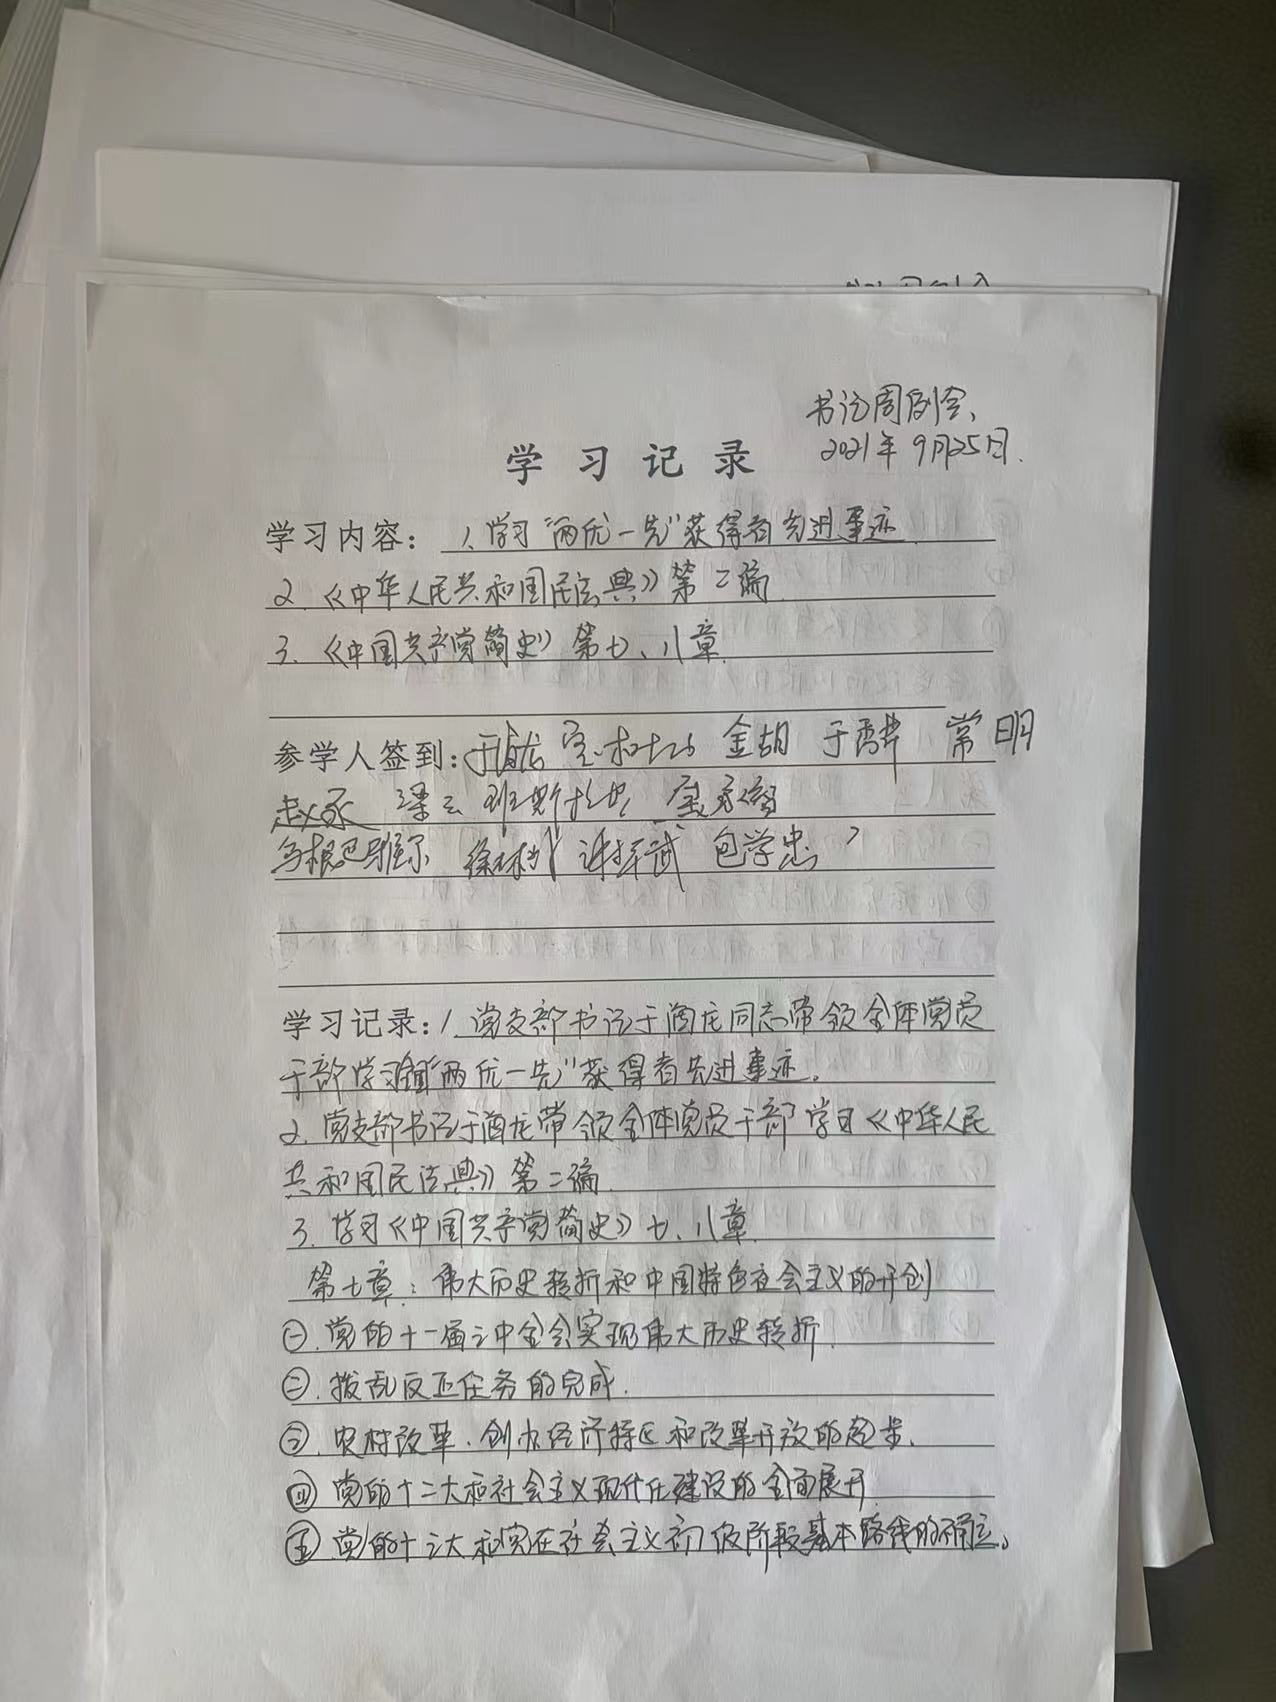 书记周例会、
2021年9月25日.
学习记录
学习内容：1.学习“两优一先”获得者先进事迹
2.《中华人民共和国民法典》第二编
3.《中国共产党简史》第七、八章
参学人签到: 金胡 常明
乌根巴雅尔 包学忠
学习记录：1.党支部书记于 龙同志带领全体党员
干部学习 “两优一先”获得者先进事迹.
2.党支部书记于 龙带领全体党员干部学习《中华人民
共和国民法典》第二编
3.学习《中国共产党简史》七、八章
第七章：伟大历史转折和中国特色社会主义的开创
㊀.党的十一届三中全会实现伟大历史转折.
㊁.拨乱反正任务的完成.
㊂.农村改革.创办经济特区和改革开放的起步.
㊃党的十二大和社会主义现代化建设的全面展开
㊄.党的十三大和党在社会主义初级阶段基本路线的确立。